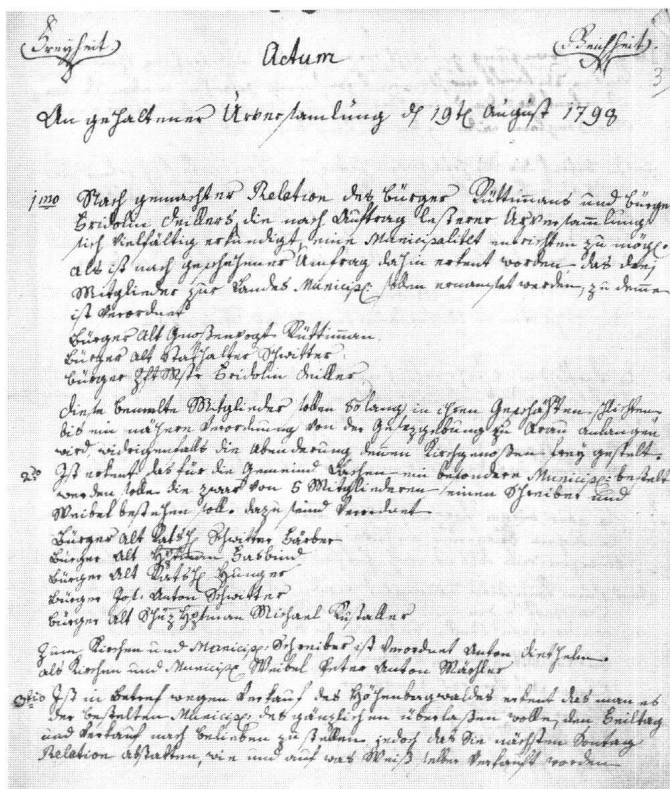 Freyheit Actum Gleichheit
3
An gehaltener Urversamlung d 19t August 1798
1mo Nach gemachter Relation des Bürger Rüttimans und Bürger
Fridolin die nach Auftrag Urversammlung
sich vielfältig erkundigt, eine Municipalitet zu mög.
als ist nach geschehener Umfrag dahin erkent worden, das drey
Mitglieder zur Landes Municip: sollen ernamset werden, zu denne
ist verordnet
Bürger Alt Gnoßenvogt Rüttiman
Bürger Alt Stathalter Schwitter
Bürger Fridolin
Diese benamte Mitglieder sollen so lang in ihren Geschäften
bis ein nähere Verordnung von der Gesezgebung zu Arau anlangen
wird, widrigenfalls die Abenderung denen Kirchgenoßen frey gestelt.
2do Ist erkent das für die Gemeind Lachen ein besondere Municip: bestelt
werden solle die zwar von 5 Mitgliederen einen Schreiber und
Weibel bestehen soll. dazu sind verordnet
Bürger Alt Rathsh Schwitter
Bürger Alt Gasbind
Bürger Alt Rathsh Hunger
Bürger Anton Schwitter
Bürger Alt Schüz Hptman Michael
Zum Kirchen und Municip Schreiber ist verordnet Anton Diethelm
als Kirchen und Municip Weibel Peter Anton Mächler
3tio Ist in betref wegen Verkauf des erkent das man es
der bestelten Municip: des gänzlichen überlaßen wolle, den
und Verkauf nach belieben zu stellen. jedoch das Sie nächsten Sontag
Relation abstatten, wie und auf was Weiß selber verkauft worden